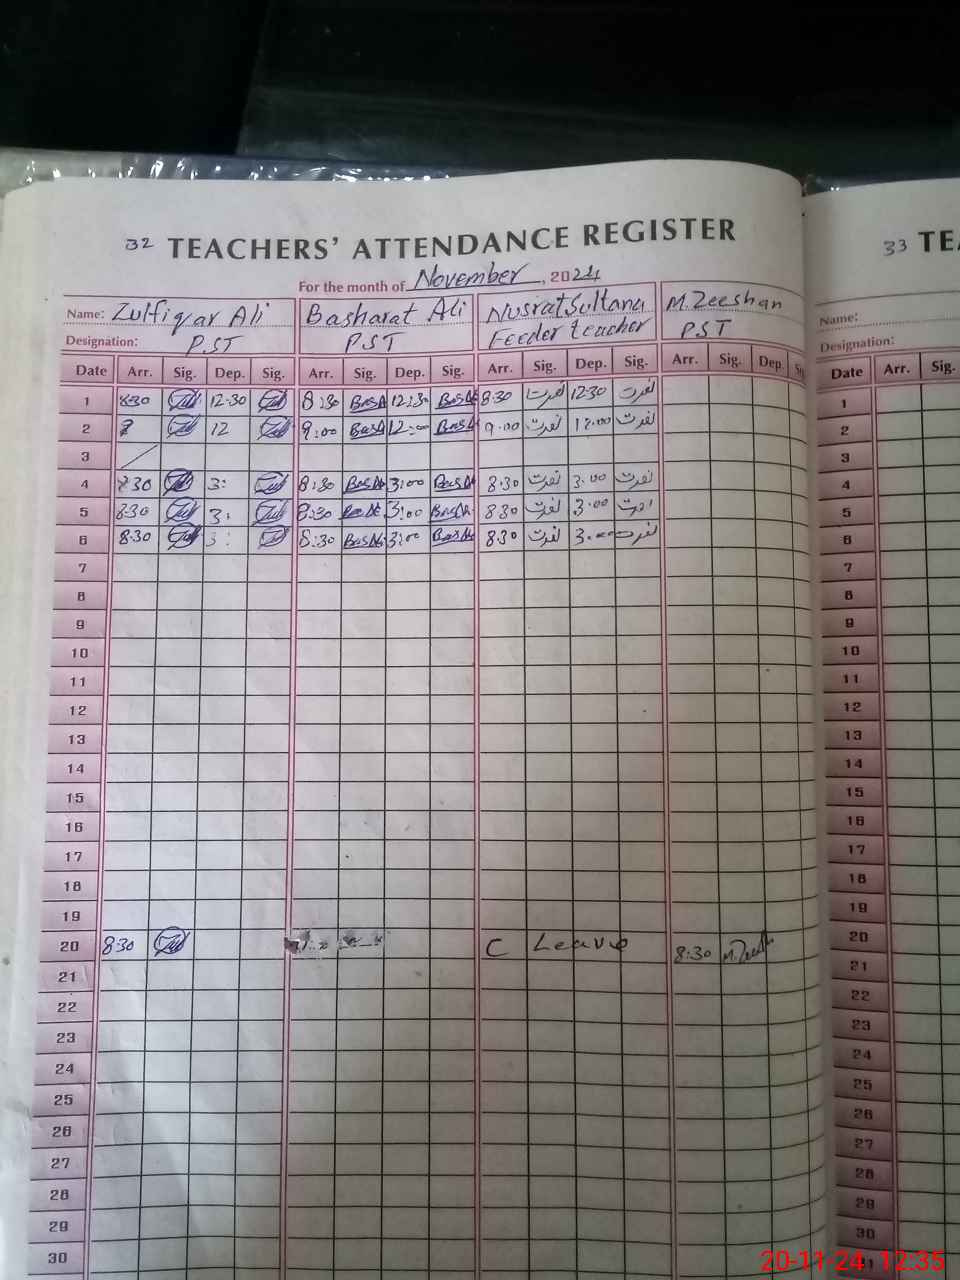 32 TEACHERS' ATTENDANCE REGISTER
For the month of November, 2024
Name: Zulfiqar Ali Basharat Ali Nusrat Sultana M. Zeeshan
Designation: PST PST Feeder teacher PST
Date Arr. Sig. Dep. Sig. Arr. Sig. Dep. Sig. Arr. Sig. Dep. Sig. Arr. Sig. Dep.
1 8:30 12:30 8:30 12:30 8:30 نصرت 12:30 نصرت
2 12 9:00 12:00 9:00 نصرت 12:00 نصرت
3
4 8:30 3: 8:30 3:00 8:30 نصرت 3:00 نصرت
5 8:30 3: 8:30 3:00 8:30 نصرت 3:00 نصرت
6 8:30 3: 8:30 3:00 8:30 نصرت 3:00 نصرت
7
8
9
10
11
12
13
14
15
16
17
18
19
20 8:30 C Leave 8:30
21
22
23
24
25
26
27
28
29
30
33 TEA
Name:
Designation:
Date Arr. Sig.
1
2
3
4
5
6
7
8
9
10
11
12
13
14
15
16
17
18
19
20
21
22
23
24
25
26
27
28
29
30
20-11-24 12:35